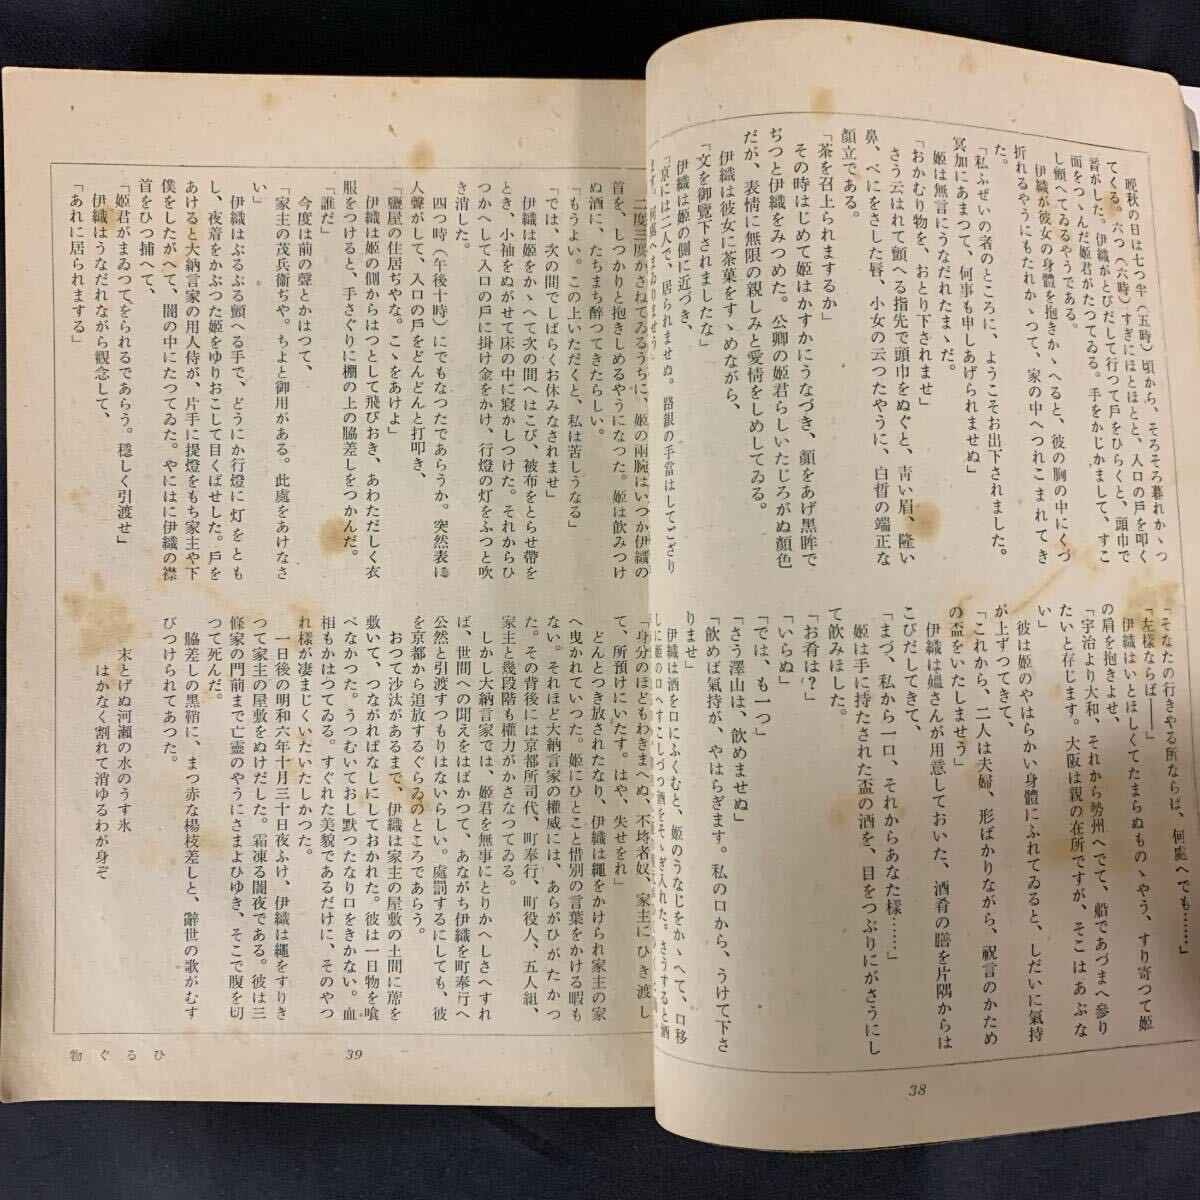 晩秋の日は七つ半（五時）頃から、そろそろ暮れかゝつ
てくる。六つ（六時）すぎにほとほとと、入口の戸を叩く
音がした。伊織がとびだして行つて戸をひらくと、頭巾で
面をつゝんだ姫君がたつてゐる。手をかじかまして、すこ
し顫へてゐるやうである。
伊織が彼女の身體を抱きかゝへると、彼の胸の中にくづ
折れるやうにもたれかゝつて、家の中へつれこまれてき
た。
「私ふぜいの者のところに、ようこそお出下されました。
冥加にあまつて、何事も申しあげられませぬ」
姫は無言にうなだれたまゝだ。
「おかむり物を、おとり下されませ」
さう云はれて顫へる指先で頭巾をぬぐと、靑い眉、隆い
鼻、べにをさした唇、小女の云つたやうに、白皙の端正な
顏立である。
「茶を召上られまするか」
その時はじめて姫はかすかにうなづき、顏をあげ黑眸で
ぢつと伊織をみつめた。公卿の姫君らしいたじろがぬ顏色
だが、表情に無限の親しみと愛情をしめしてゐる。
伊織は彼女に茶菓をすゝめながら、
「文を御覽下されましたな」
伊織は姫の側に近づき、
「京には二人で、居られませぬ。路銀の手當はしてござり
ます。何處へまゐりませう」
「そなたの行きやる所ならば、何處へでも……」
「左樣ならば――」
伊織はいとほしくてたまらぬものゝやう、すり寄つて姫
の肩を抱きよせ、
「宇治より大和、それから勢州へでて、船であづまへ參り
たいと存じます。大阪は親の在所ですが、そこはあぶな
い」
彼は姫のやはらかい身體にふれてゐると、しだいに氣持
が上ずつてきて、
「これから、二人は夫婦、形ばかりながら、祝言のかため
の盃をいたしませう」
伊織は媼さんが用意しておいた、酒肴の膳を片隅からは
こびだしてきて、
「まづ、私から一口、それからあなた樣……」
姫は手に持たされた盃の酒を、目をつぶりにがさうにし
て飲みほした。
「お肴は？」
「いらぬ」
「では、も一つ」
「さう澤山は、飲めませぬ」
「飲めば氣持が、やはらぎます。私の口から、うけて下さ
りませ」
伊織は酒を口にふくむと、姫のうなじをかゝへて、口移
しに姫の口へすこしづつ酒をそゝぎ入れた。さうすると酒
38
二度三度かさねてゐるうちに、姫の兩腕はいつか伊織の
首を、しつかりと抱きしめるやうになつた。姫は飲みつけ
ぬ酒に、たちまち醉つてきたらしい。
「もうよい。この上いただくと、私は苦しうなる」
「では、次の間でしばらくお休みなされませ」
伊織は姫をかゝへて次の間へはこび、被布をとらせ帶を
とき、小袖をぬがせて床の中に寢かしつけた。それからひ
つかへして入口の戸に掛け金をかけ、行燈の灯をふつと吹
き消した。
四つ時（午後十時）にでもなつたであらうか。突然表に
人聲がして、入口の戸をどんどんと打叩き、
「鹽屋の住居ぢやな。こゝをあけよ」
伊織は姫の側からはつとして飛びおき、あわただしく衣
服をつけると、手さぐりに棚の上の脇差しをつかんだ。
「誰だ」
今度は前の聲とかはつて、
「家主の茂兵衞ぢや。ちよと御用がある。此處をあけなさ
い」
伊織はぶるぶる顫へる手で、どうにか行燈に灯をとも
し、夜着をかぶつた姫をゆりおこして目くばせした。戸を
あけると大納言家の用人侍が、片手に提燈をもち家主や下
僕をしたがへて、闇の中にたつてゐた。やにはに伊織の襟
首をひつ捕へて、
「姫君がまゐつてをられるであらう。穩しく引渡せ」
伊織はうなだれながら觀念して、
「あれに居られまする」
「身分のほどもわきまへぬ、不埓者奴、家主にひき渡し
て、所預けにいたす。はや、失せをれ」
どんとつき放されたなり、伊織は繩をかけられ家主の家
へ曳かれていつた。姫にひとこと惜別の言葉をかける暇も
ない。それほど大納言家の權威には、あらがひがたかつ
た。その背後には京都所司代、町奉行、町役人、五人組、
家主と幾段階も權力がかさなつてゐる。
しかし大納言家では、姫君を無事にとりかへしさへすれ
ば、世間への聞えをはばかつて、あながち伊織を町奉行へ
公然と引渡すつもりはないらしい。處罰するにしても、彼
を京都から追放するぐらゐのところであらう。
おつて沙汰があるまで、伊織は家主の屋敷の土間に蓆を
敷いて、つながればなしにしておかれた。彼は一日物を喰
べなかつた。うつむいておし默つたなり口をきかない。血
相もかはつてゐる。すぐれた美貌であるだけに、そのやつ
れ樣が凄まじくいたいたしかつた。
一日後の明和六年十月三十日夜ふけ、伊織は繩をすりき
つて家主の屋敷をぬけだした。霜凍る闇夜である。彼は三
條家の門前まで亡靈のやうにさまよひゆき、そこで腹を切
つて死んだ。
脇差しの黑鞘に、まつ赤な楊枝差しと、辭世の歌がむす
びつけられてあつた。
末とげぬ河瀨の水のうす氷
はかなく割れて消ゆるわが身ぞ
39
ひるぐ物